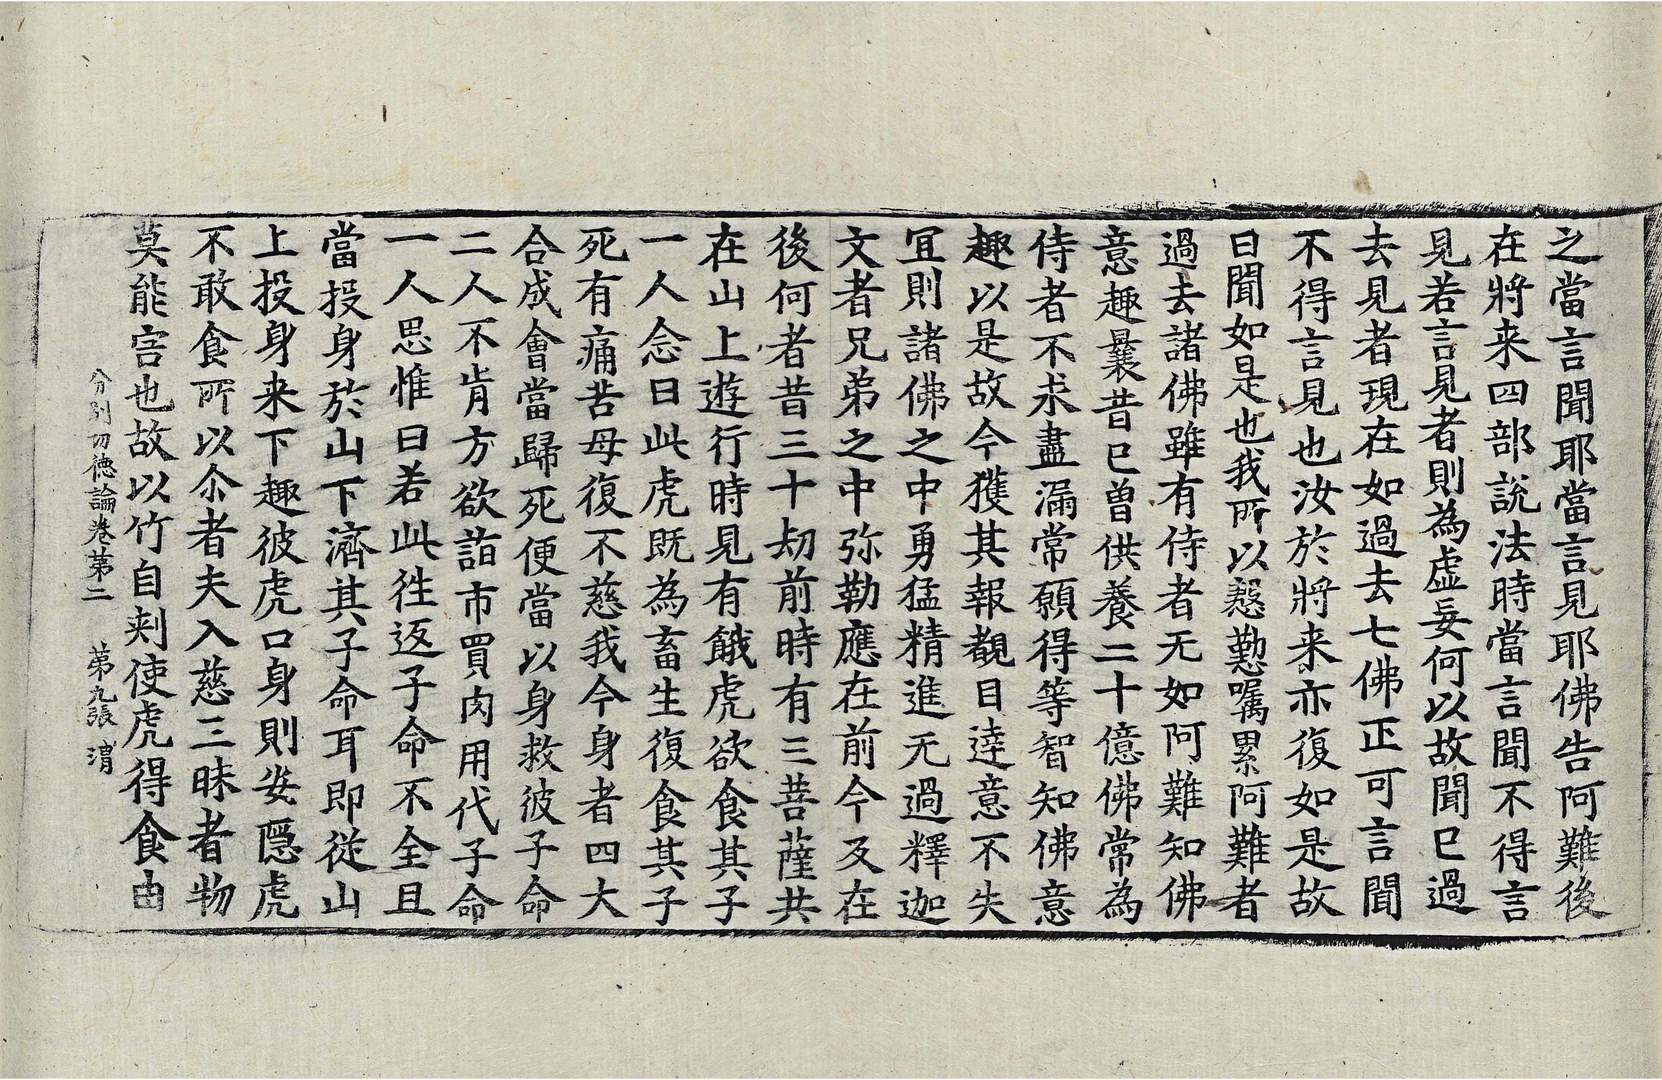 之當言聞耶當言見耶佛告阿難後
在將来四部說法時當言聞不得言
見若言見者則為虛妄何以故聞已過
去見者現在如過去七佛正可言聞
不得言見也汝於將来亦復如是故
曰聞如是也我所以慇懃囑累阿難者
過去諸佛雖有侍者无如阿難知佛
意趣曩昔已曾供養二十億佛常為
侍者不求盡漏常願得等智知佛意
趣以是故今獲其報覩目逹意不失
冝則諸佛之中勇猛精進无過釋迦
文者兄弟之中弥勒應在前今及在
後何者昔三十劫前時有三菩薩共
在山上遊行時見有餓虎欲食其子
一人念曰此虎既為畜生復食其子
死有痛苦母復不慈我今身者四大
合成會當歸死便當以身救彼子命
二人不肯方欲詣市買肉用代子命
一人思惟曰若此徃返子命不全且
當投身於山下濟其子命耳即從山
上投身来下趣彼虎口身則安隱虎
不敢食所以尒者夫入慈三昧者物
莫能害也故以竹自刾使虎得食由
分別功德論卷第二 第九張 渭